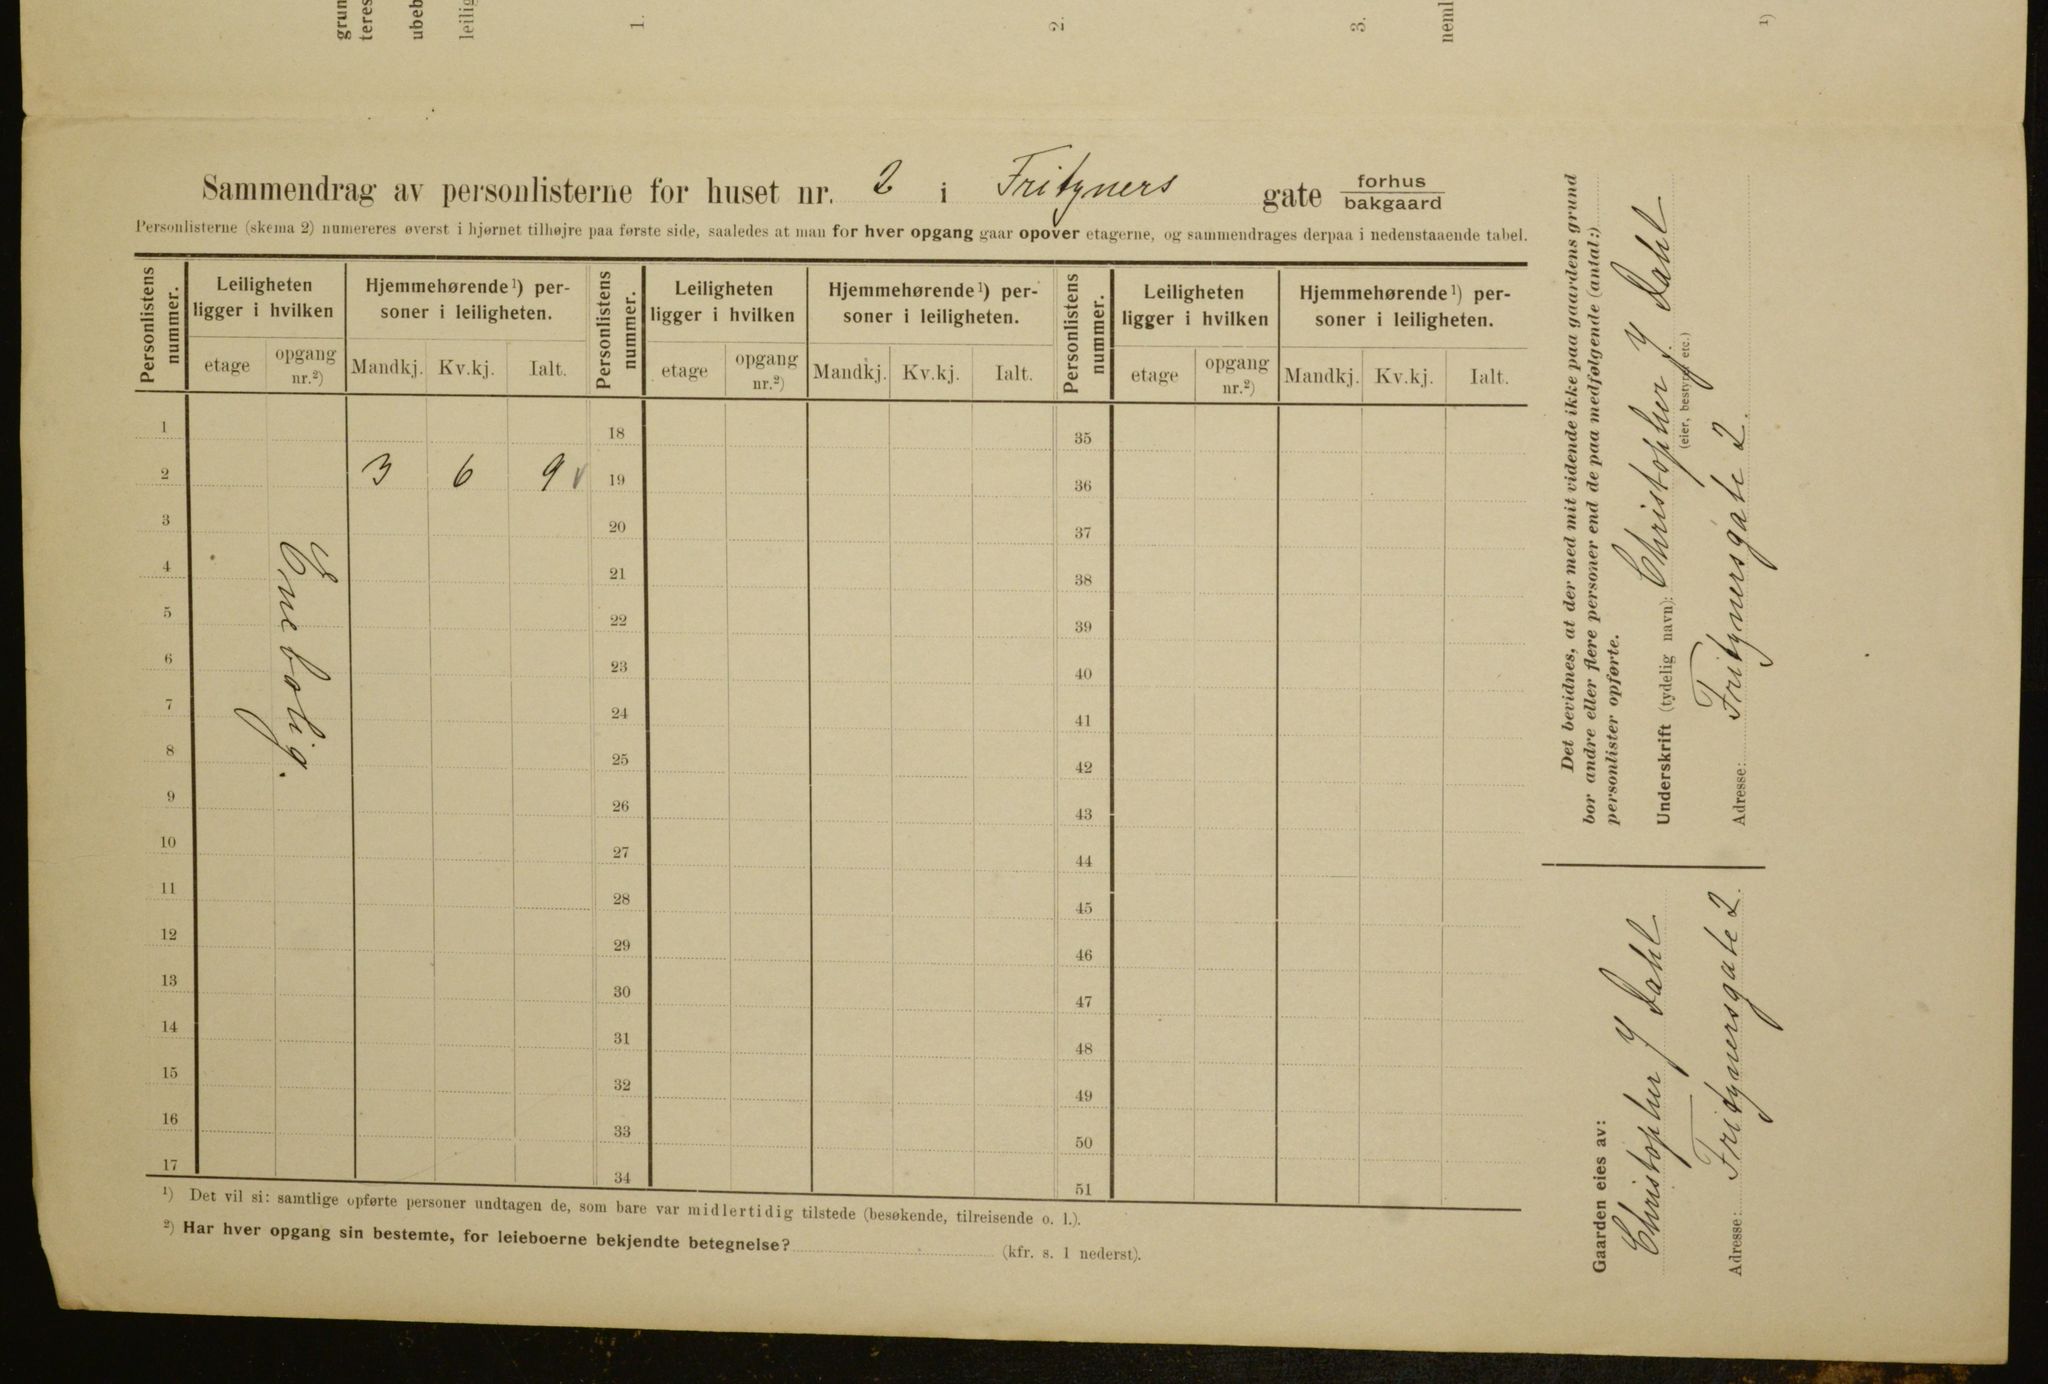 grun
teres
ubeb
leilig
1.
2.
3.
neml
1)
Sammendrag av personlisterne for huset nr. 2 i Fritzners gate forhus
bakgaard
Personlisterne (skema 2) numereres øverst i hjørnet tilhøjre paa første side, saaledes at man for hver opgang gaar opover etagerne, og sammendrages derpaa i nedenstaaende tabel.
Personlistens nummer. Leiligheten ligger i hvilken Hjemmehørende 1) personer i leiligheten. Personlistens nummer. Leiligheten ligger i hvilken Hjemmehørende 1) personer i leiligheten. Personlistens nummer. Leiligheten ligger i hvilken Hjemmehørende 1) personer i leiligheten.
etage opgang nr.2) Mandkj. Kv.kj. Ialt. etage opgang nr.2) Mandkj. Kv.kj. Ialt. etage opgang nr.2) Mandkj. Kv.kj. Ialt.
1 18 35
2 3 6 9 19 36
3 20 37
4 21 38
5 22 39
6 23 40
7 24 41
8 25 42
9 26 43
10 27 44
11 28 45
12 29 46
13 30 47
14 31 48
15 32 49
16 33 50
17 34 51
Enebolig.
1) Det vil si: samtlige opførte personer undtagen de, som bare var midlertidig tilstede (besøkende, tilreisende o. l.).
2) Har hver opgang sin bestemte, for leieboerne bekjendte betegnelse? (kfr. s. 1 nederst).
Det bevidnes, at der med mit vidende ikke paa gaardens grund
bor andre eller flere personer end de paa medfølgende (antal:)
personlister opførte.
Underskrift (tydelig navn): Christopher J Dahl
(eier, bestyrer etc.)
Adresse: Fritznersgate 2.
Gaarden eies av:
Christopher J Dahl
Adresse: Fritznersgate 2.